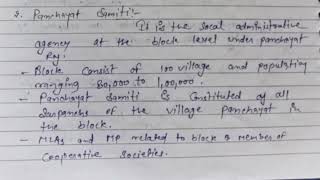 2. Panchayat Samiti:-
It is the local administrative
agency at the block level under panchayat
Raj.
- Block Consist of 100 village and population
ranging 80,000 to 1,00,000.
- Panchayat Samiti is Constituted by all
Sarpanchs of the village Panchayat in
the block.
- MLAs and MP related to block & member of
Cooperative Societies.